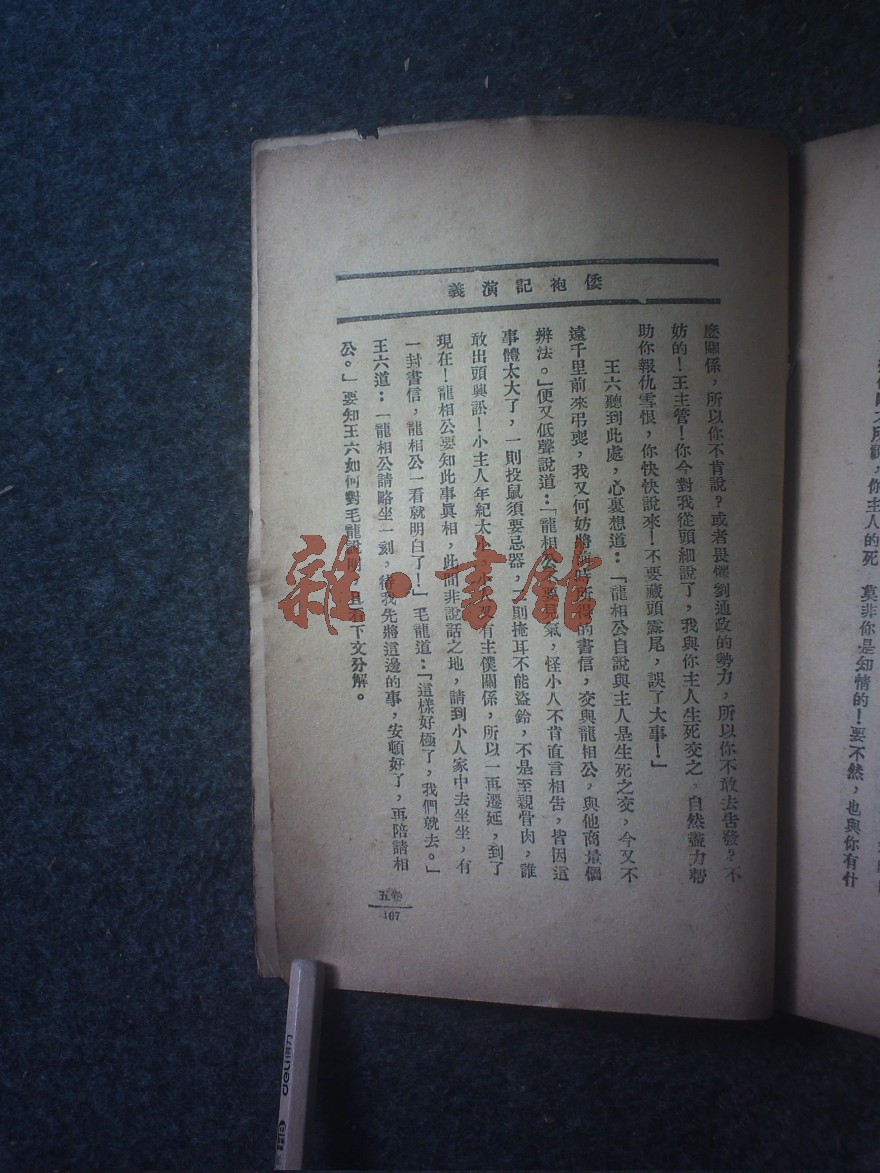 倭袍記演義
麽關係，所以你不肯說？或者畏懼劉通政的勢力，所以你不敢去告發？不
妨的！王主管！你今對我從頭細說了，我與你主人生死交之，自然盡力幫
助你報仇雪恨，你快快說來！不要藏頭露尾，誤了大事！」
王六聽到此處，心裏想道：「龍相公自說與主人是生死之交，今又不
遠千里前來弔喪，我又何妨將 時所得的書信，交與龍相公，與他商量個
辦法。」便又低聲說道：「龍相公不要見氣，怪小人不肯直言相告，皆因這
事體太大了，一則投鼠須要忌器，二則掩耳不能盜鈴，不是至親骨肉，誰
敢出頭興訟！小主人年紀太小，小人又有主僕關係，所以一再遷延，到了
現在！龍相公要知此事眞相，此間非說話之地，請到小人家中去坐坐，有
一封書信，龍相公一看就明白了！」毛龍道：「這樣好極了，我們就去。」
王六道：「龍相公請略坐一刻，待我先將這邊的事，安頓好了，再陪請相
公。」要知王六如何對毛龍說明，且看下文分解。
卷五
167
雜·書館
你主人的死 莫非你是知情的！要不然，也與你有什
deli得力